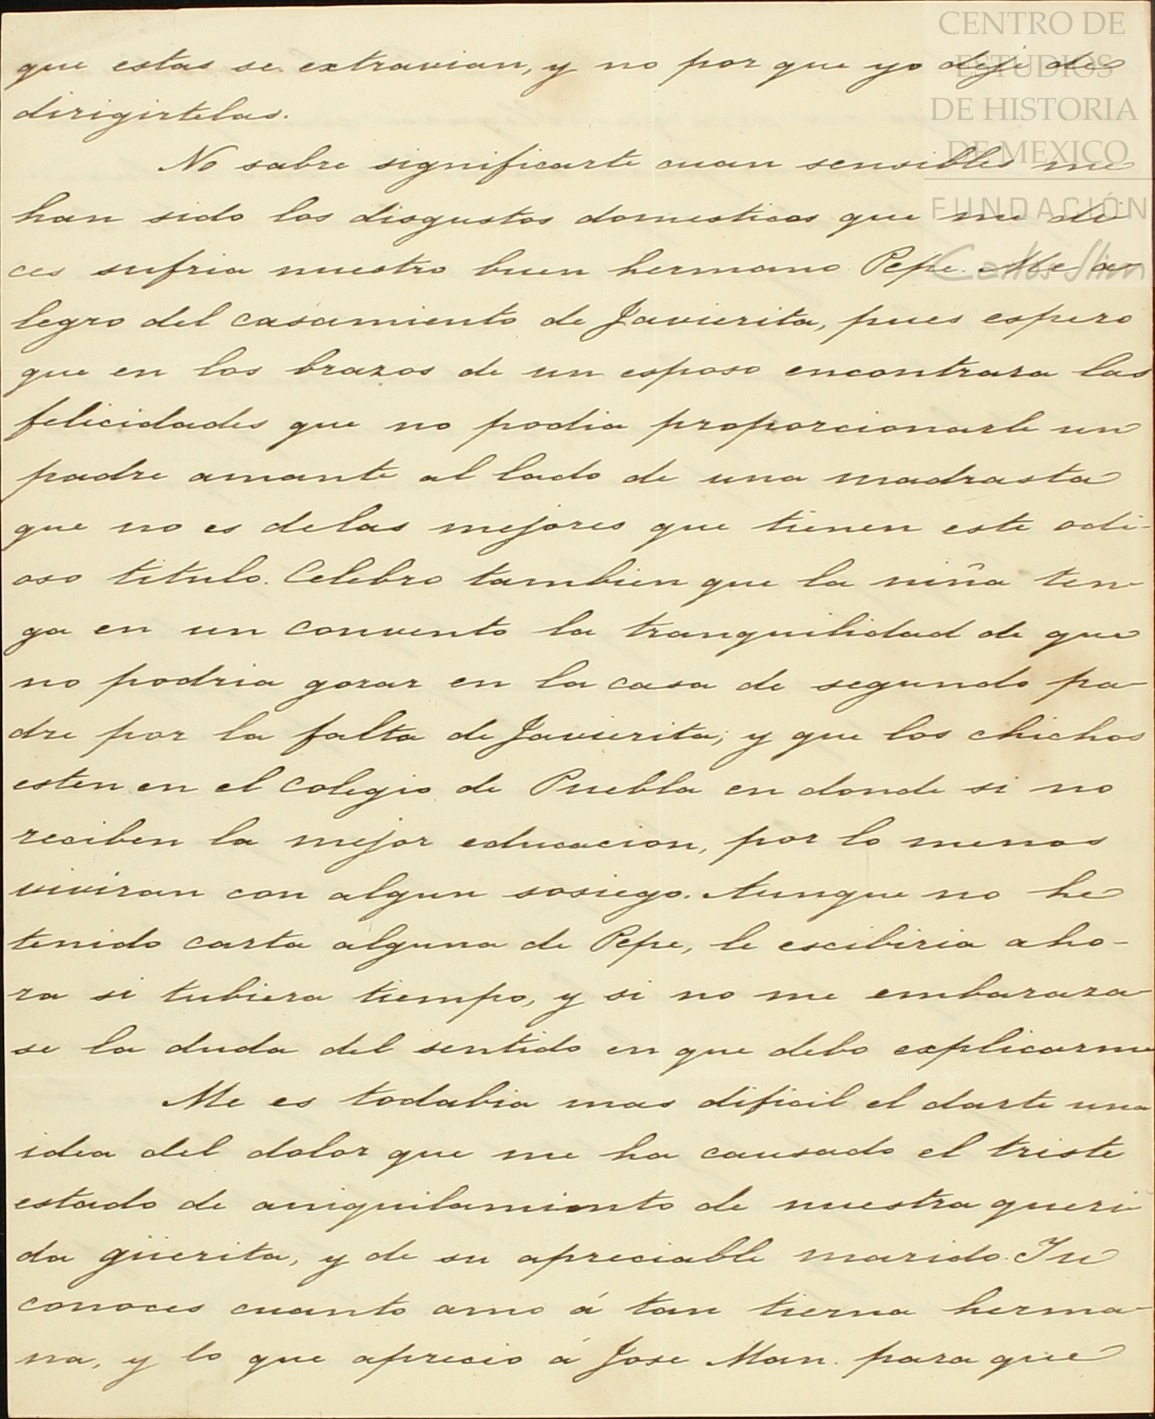 CENTRO DE
ESTUDIOS
DE HISTORIA
DE MEXICO
FUNDACIÓN
Carlos Slim
que estas se extravian, y no por que yo deje de
dirigirtelas.
No sabre significarte cuan sensibles me
han sido los disgustos domesticos que me di-
ces sufria nuestro buen hermano Pepe. Me a-
legro del casamiento de Javierita, pues espero
que en los brazos de un esposo encontrara las
felicidades que no podia proporcionarle un
padre amante al lado de una madrasta
que no es delas mejores que tienen este odi-
oso titulo. Celebro tambien que la niña ten-
ga en un convento la tranquilidad de que
no podria gozar en la casa de segundo pa-
dre por la falta de Javierita; y que los chichos
esten en el Colegio de Puebla en donde si no
reciben la mejor educacion, por lo menos
viviran con algun sosiego. Aunque no he
tenido carta alguna de Pepe, le escibiria aho-
ra si tubiera tiempo, y si no me embaraza-
se la duda del sentido en que debo explicarme
Me es todabia mas dificil el darte una
idea del dolor que me ha causado el triste
estado de aniquilamiento de nuestra queri-
da güerita, y de su apreciable marido. Tu
conoces cuanto amo á tan tierna herma-
na, y lo que aprecio á Jose Man. para que